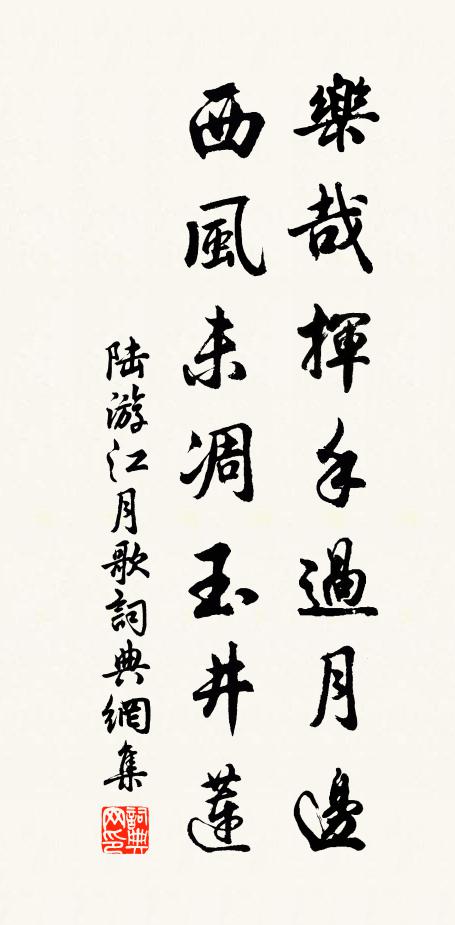 樂哉揮手過月邊
西風未凋玉井蓮
陆游江月歌詞典網集
詞典网印